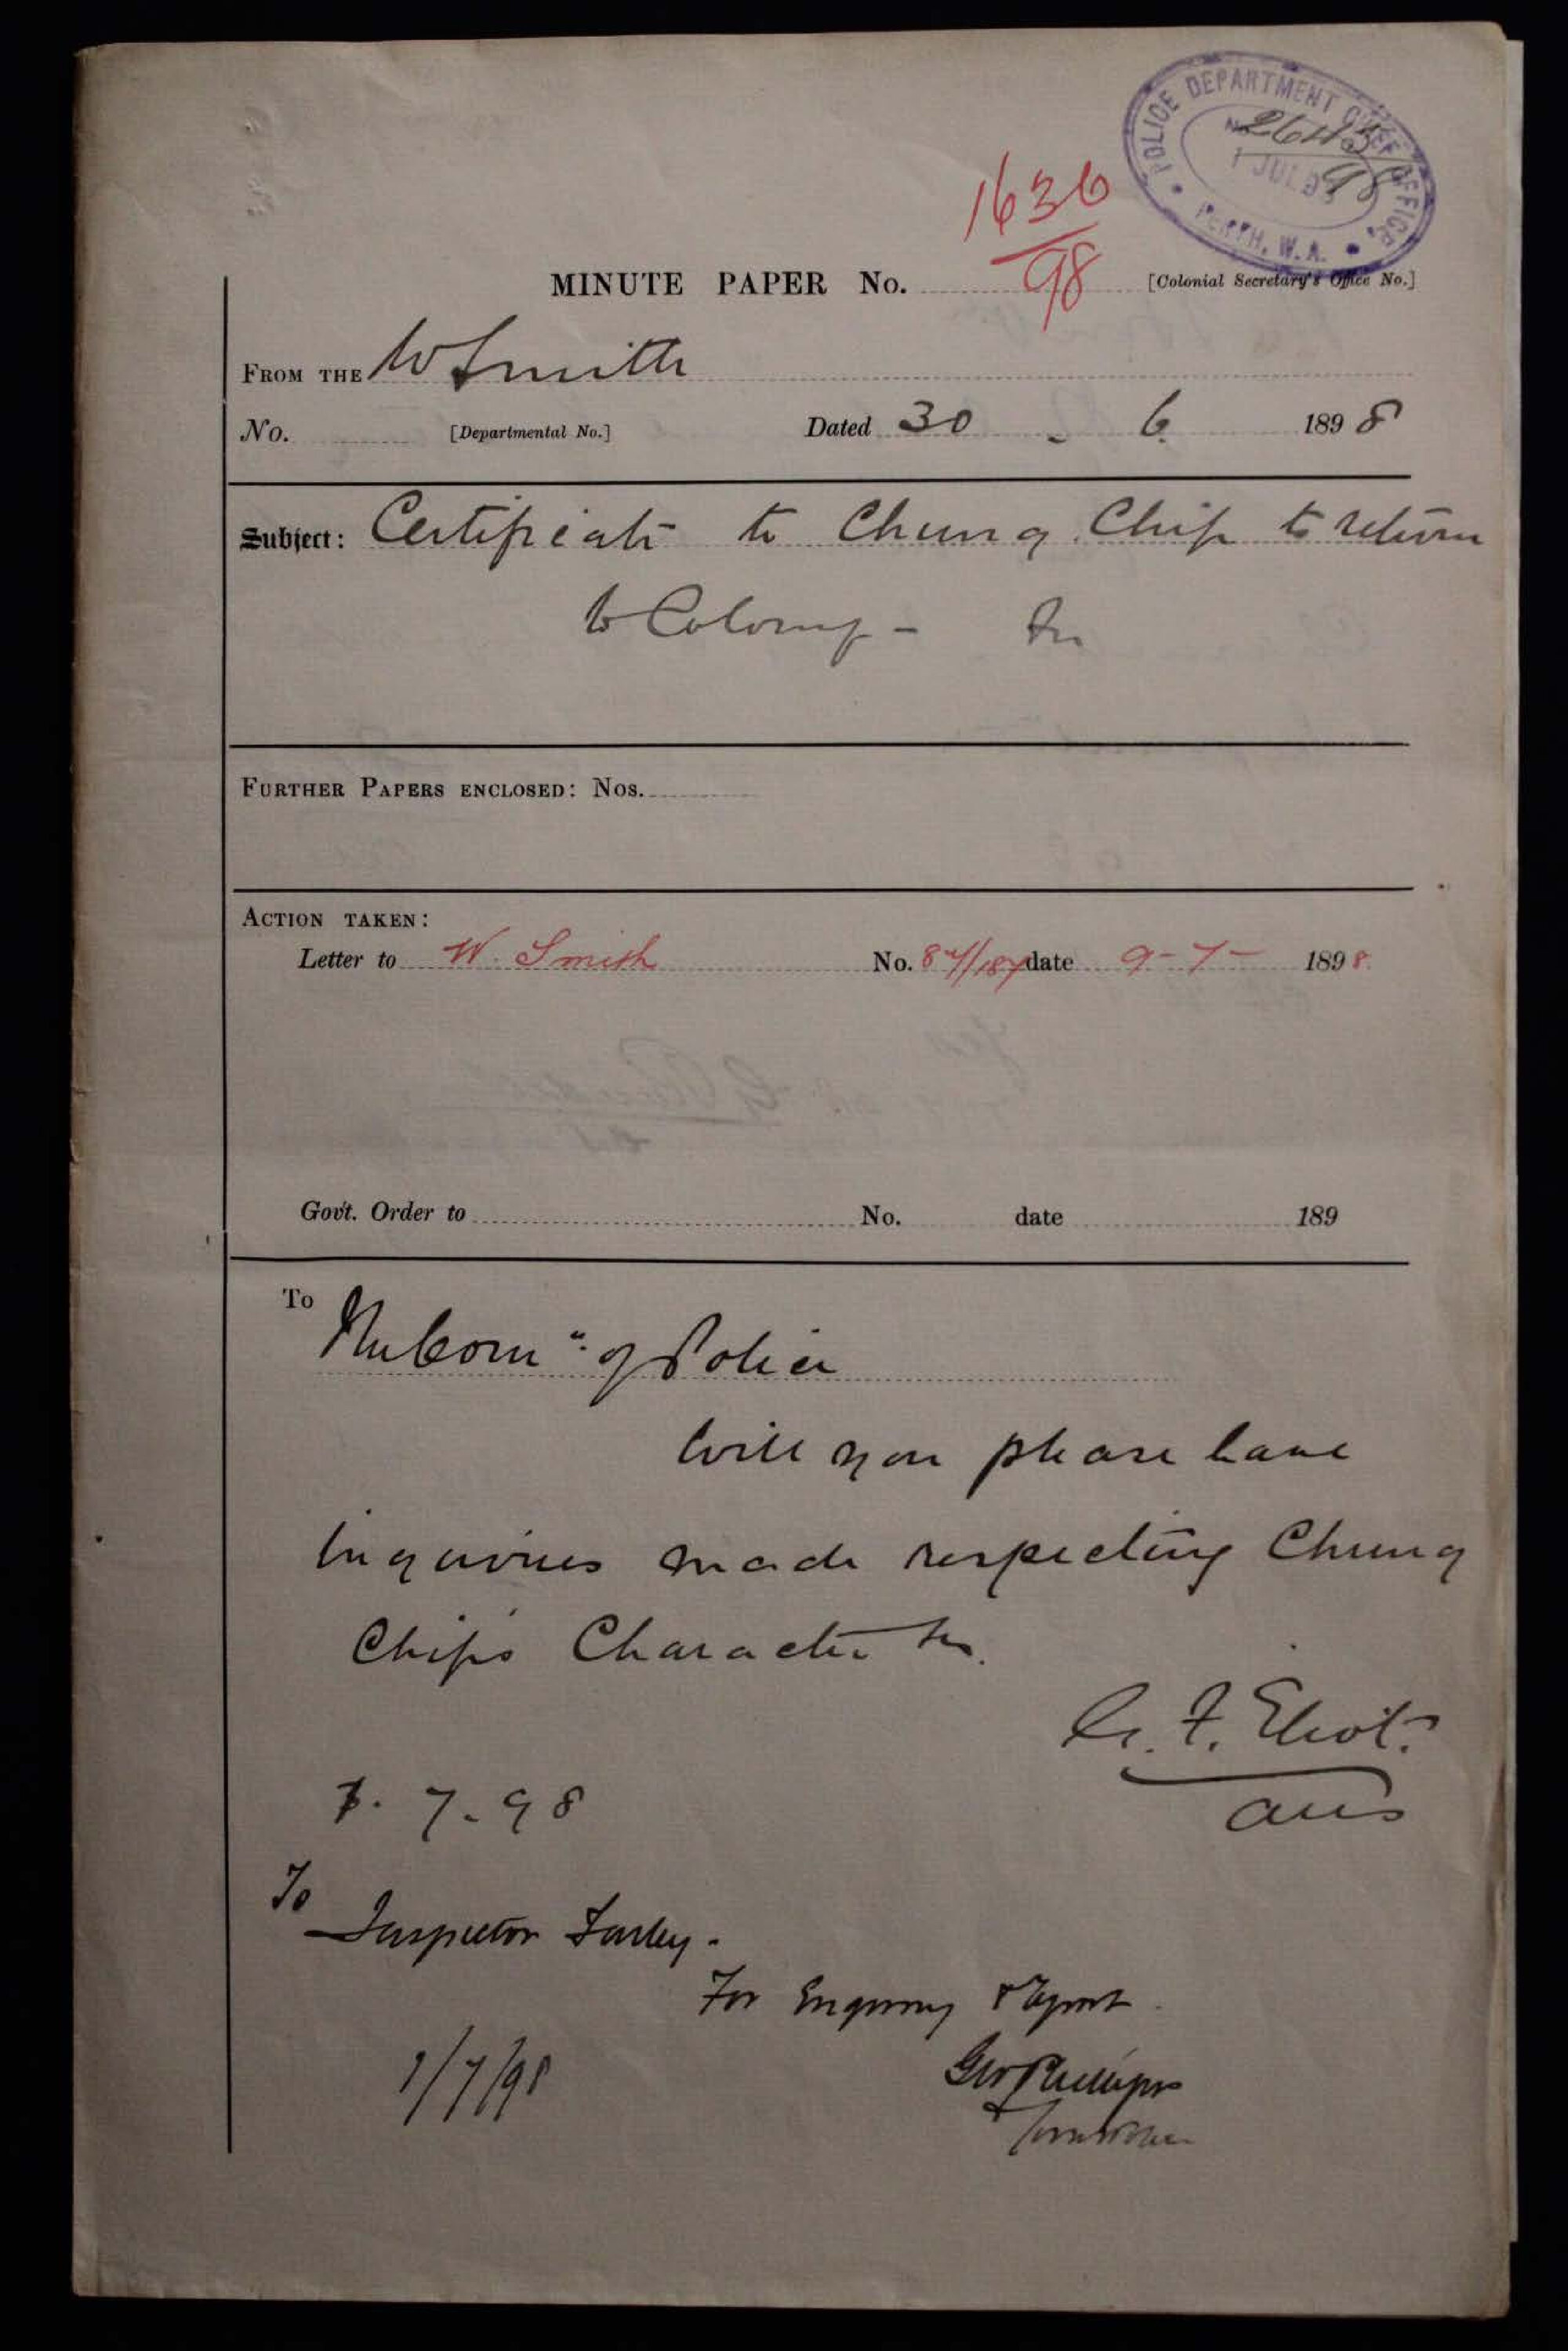 POLICE DEPARTMENT CHIEF OFFICE,
No. 2645/98
1 JUL 98
PERTH, W.A.
1636/98
MINUTE PAPER No. [Colonial Secretary's Office No.]
FROM THE W Smith
No. [Departmental No.] Dated 30 - 6. 1898
Subject: Certificate to Chung Chip to return
to Colony -
FURTHER PAPERS ENCLOSED: Nos.
ACTION TAKEN:
Letter to W. Smith No. date 9-7- 1898
Govt. Order to No. date 189
To
The Comr of Police
Will you please have
inquiries made respecting Chung
Chip's Character
G. F. Eliot.
aus
1. 7. 98
To
Inspector Farley.
For Enquiry & Report.
Geo Phillips
1/7/98